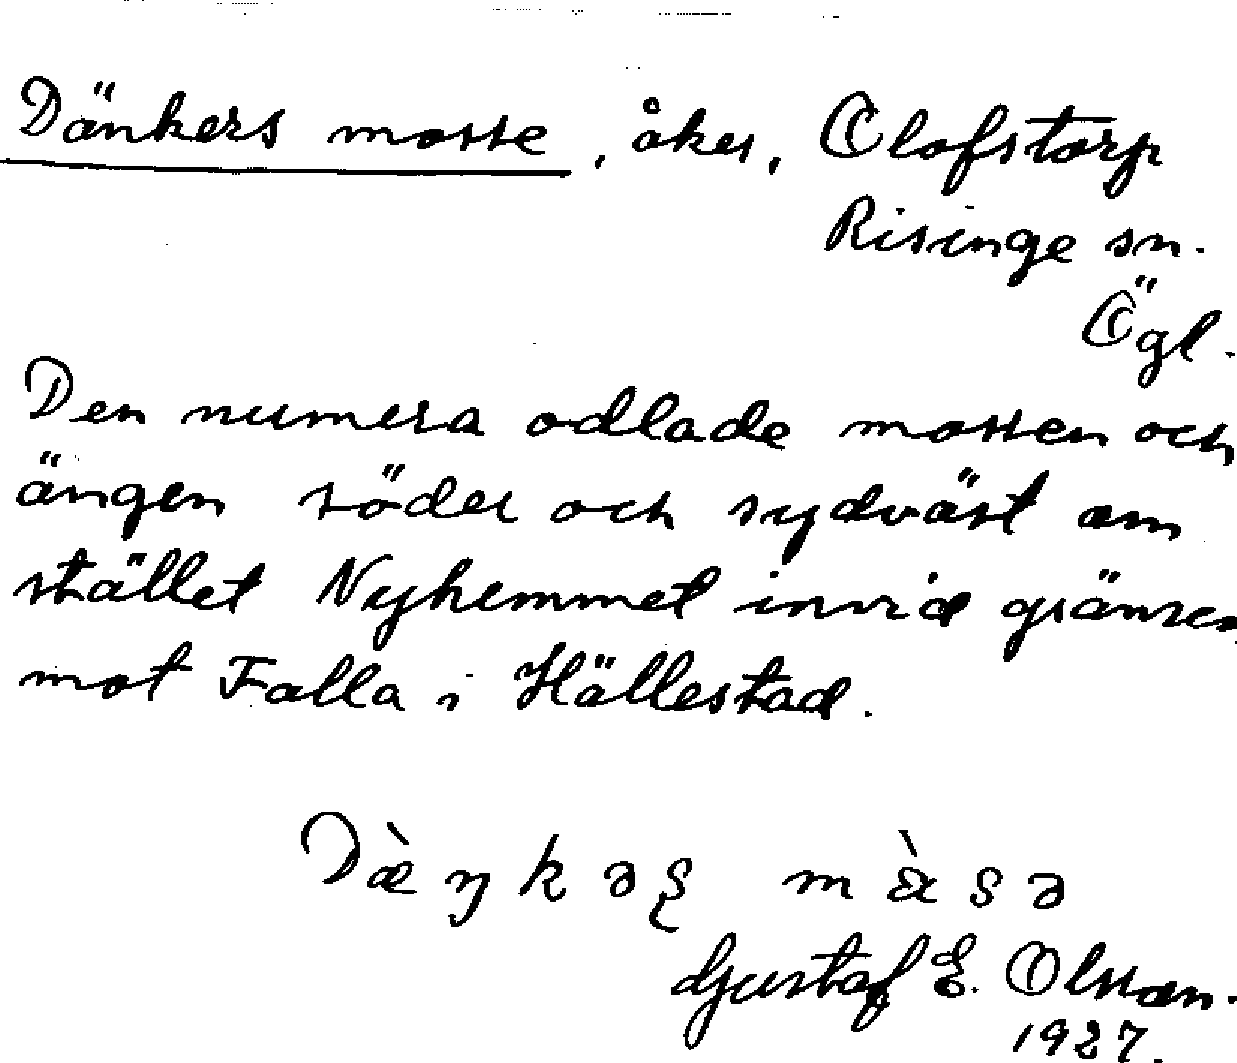 Dänkers mosse, åker, Olofstorp
Risinge sn.
Ögl.
Den numera odlade mossen och
ängen söder och sydväst om
stället Nyhemmet invid gränsen
mot Falla i Hällestad.
Gustaf E. Olsson.
1927.